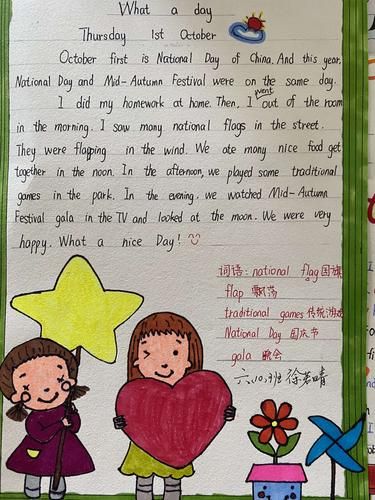 What a day
Thursday 1st October
October first is National Day of China. And this year,
National Day and Mid-Autumn Festival were on the same day.
I did my homework at home. Then, I went out of the room
in the morning. I saw many national flags in the street.
They were flapping in the wind. We ate many nice food get
together in the noon. In the afternoon, we played some traditional
games in the park. In the evening, we watched Mid-Autumn
Festival gala in the TV and looked at the moon. We were very
happy. What a nice Day!
词语: national flag 国旗
flap 飘荡
traditional games 传统游戏
National Day 国庆节
gala 晚会
六.10.班